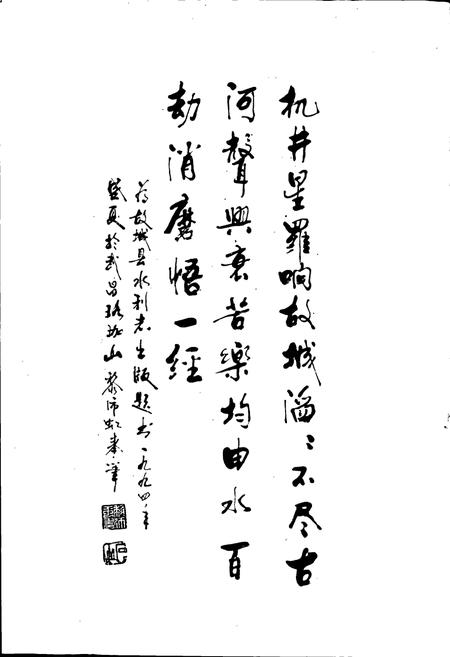 机井星罗响故城滔滔不尽古
河聲興衰苦樂均由水百
劫消磨悟一經
為故城县水利志出版题书一九九四年
盛夏於武昌珞珈山黎沛虹秉筆